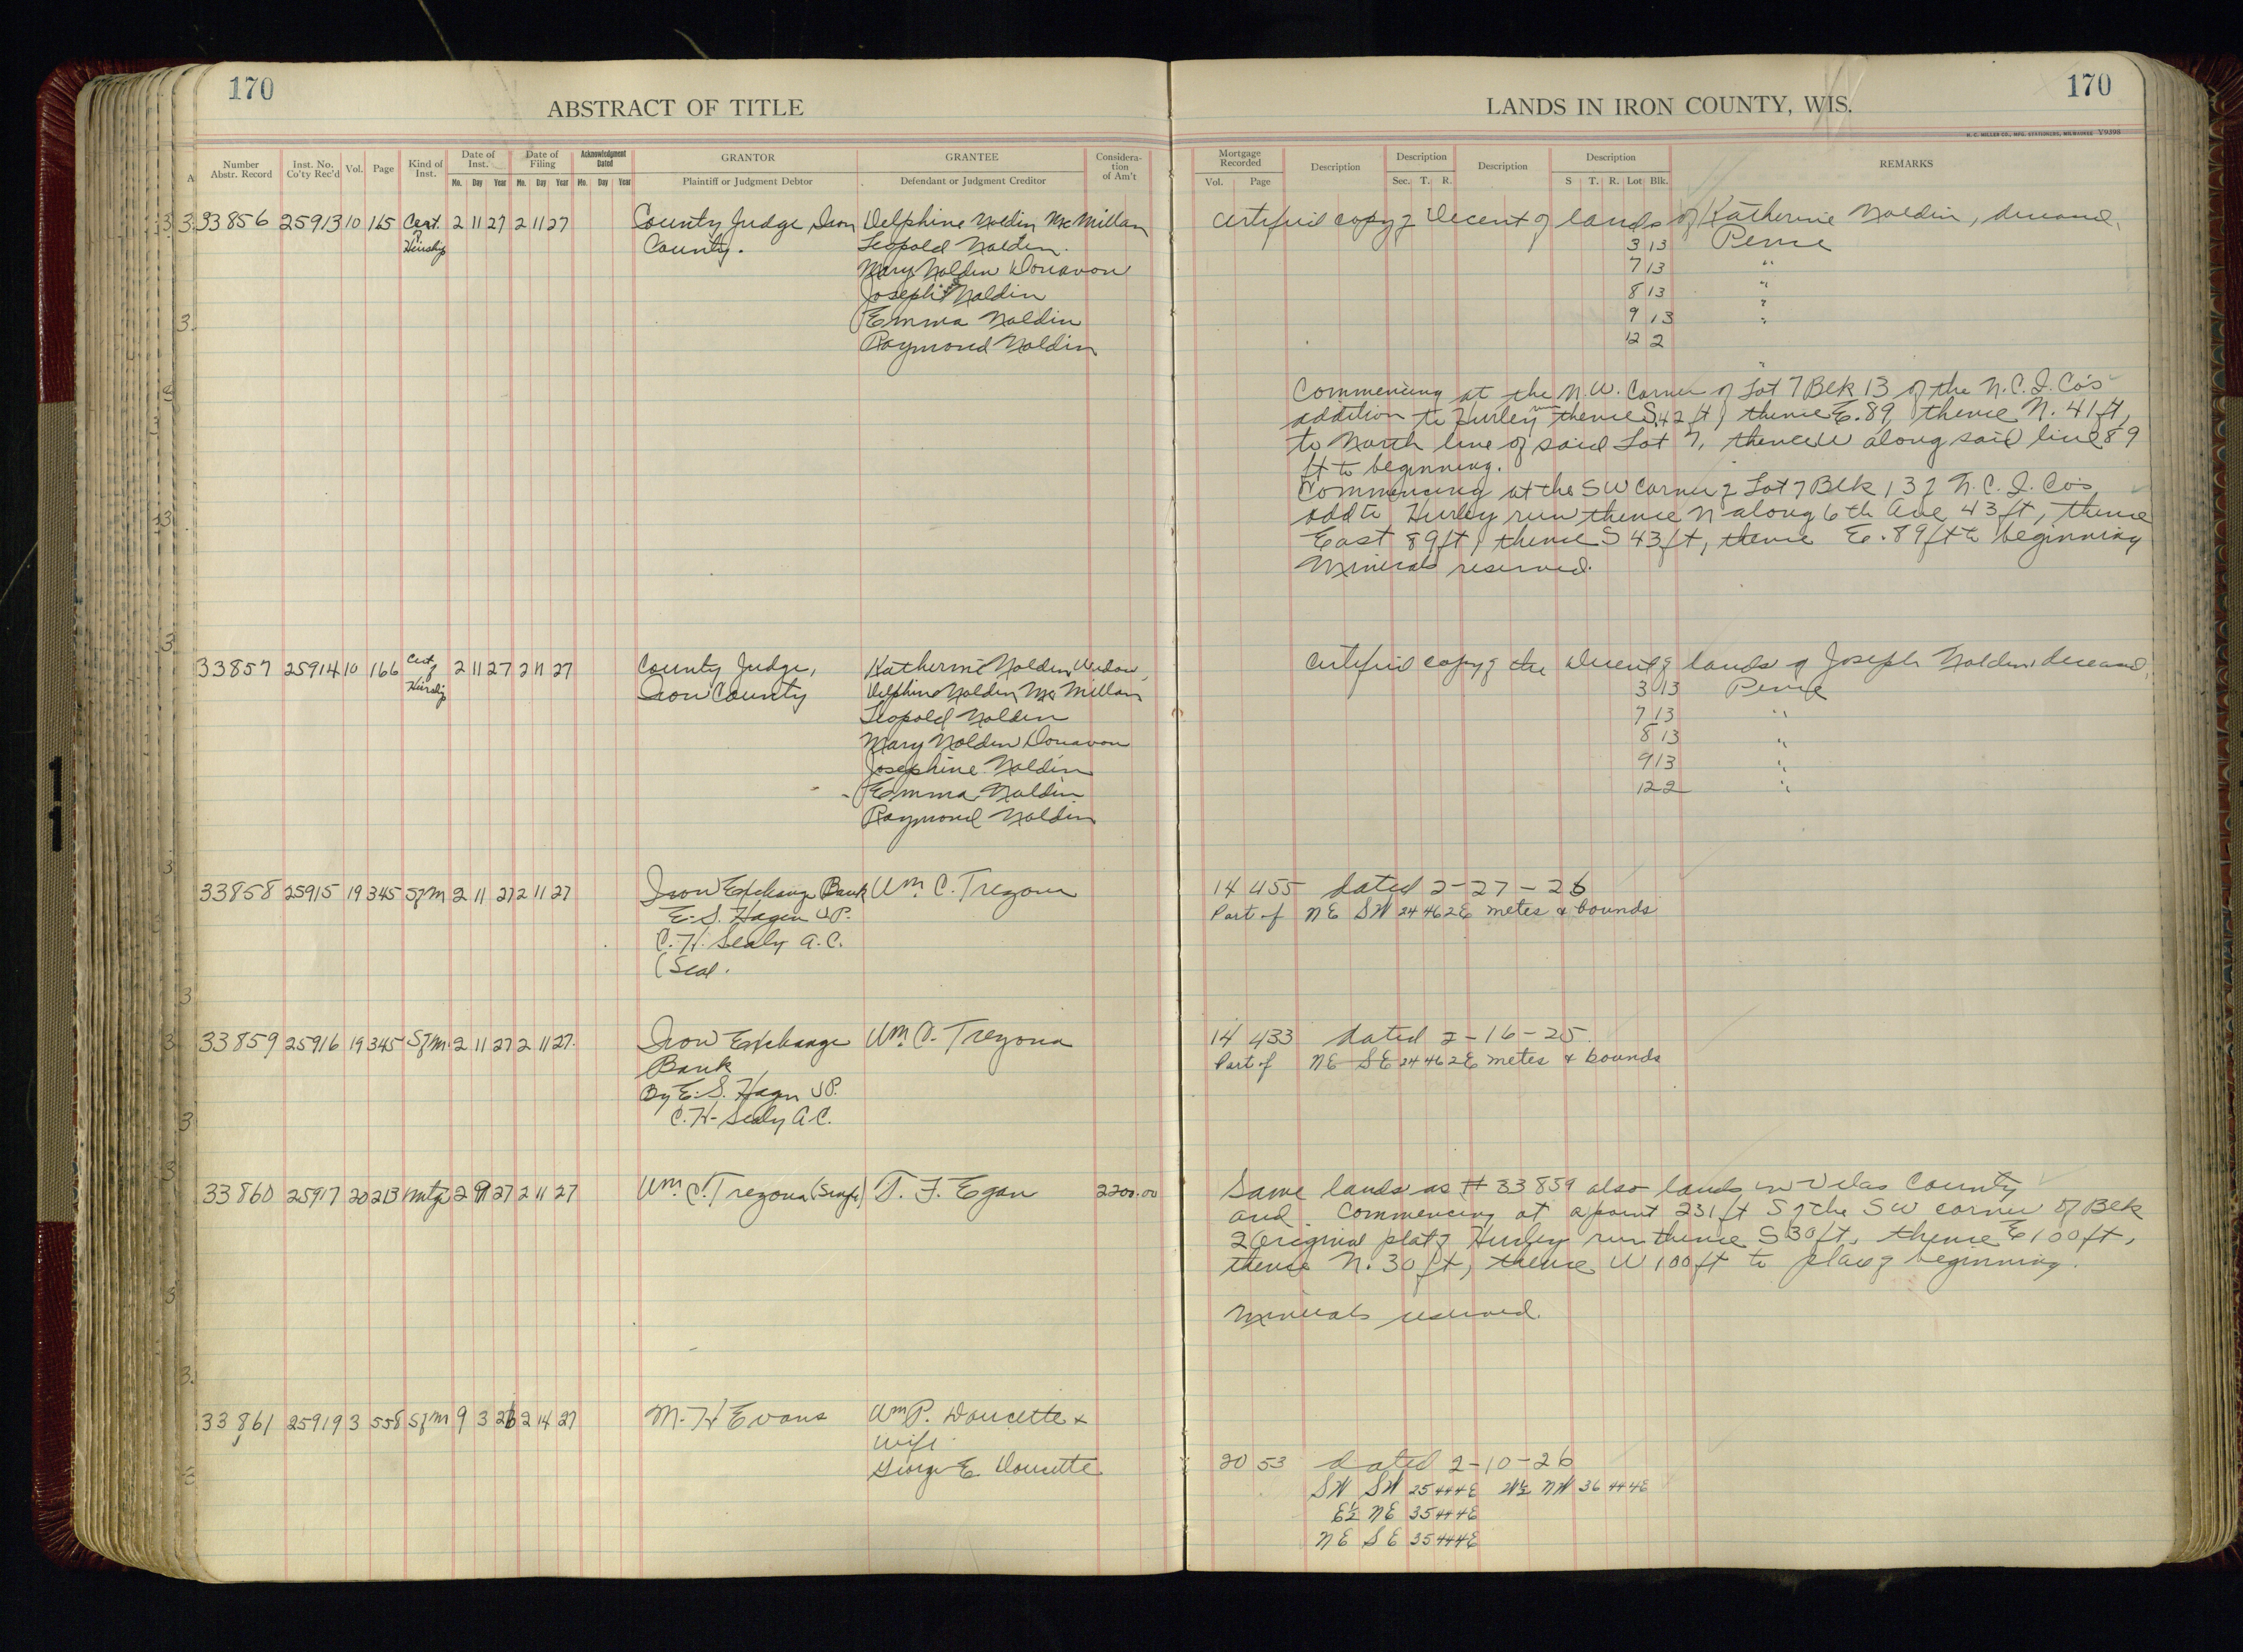 170
ABSTRACT OF TITLE
LANDS IN IRON COUNTY, WIS.
170
H. C. MILLER CO., MFG. STATIONERS, MILWAUKEE V9398
Number Abstr. Record
Inst. No. Co'ty Rec'd
Vol.
Page
Kind of Inst.
Date of Inst.
Mo. Day Year
Date of Filing
Mo. Day Year
Acknowledgment Dated
Mo. Day Year
GRANTOR
Plaintiff or Judgment Debtor
GRANTEE
Defendant or Judgment Creditor
Considera-tion of Am't
Mortgage Recorded
Vol. Page
Description
Description
Sec. T. R.
Description
Description
S T. R. Lot Blk.
REMARKS
33856 25913 10 165 Cert. of Heirship 2 11 27 2 11 27 County Judge Iron Delphine Noldin McMillan Certified copy of Decent of lands of Katherine Noldin, deceased,
County. Leopold Noldin. 3 13 Pence
Mary Noldin Donavon 7 13 "
Joseph Noldin 8 13 "
Emma Noldin 9 13 "
Raymond Noldin 12 2 "
Commencing at the N.W. Corner of Lot 7 Blk 13 of the N.C.I. Co's
addition to Hurley run thence S. 42 ft, thence E. 89, thence N. 41 ft,
to North line of said Lot 7, thence W along said line 89
ft to beginning.
Commencing at the SW Corner of Lot 7 Blk 13 of N.C.I. Co's
add to Hurley run thence N along 6th Ave 43 ft, thence
East 89 ft, thence S 43 ft, thence E. 89 ft to beginning
Minerals reserved.
33857 25914 10 166 Cert of Heirship 2 11 27 2 11 27 County Judge, Katherine Noldin, Widow, Certified copy of the Decent of lands of Joseph Noldin deceased,
Iron County Delphine Noldin McMillan 3 13 Pence
Leopold Noldin 7 13 "
Mary Noldin Donavon 8 13 "
Josephine Noldin 9 13 "
Emma Noldin 12 2 "
Raymond Noldin
33858 25915 19 345 SfM 2 11 27 2 11 27 Iron Exchange Bank Wm. C. Trezona 14 455 Dated 2-27-26
E. S. Hagen VP. Part of NE SW 24 46 2E metes & bounds
C. H. Sealy A.C.
(Seal.
33859 25916 19 345 SfM. 2 11 27 2 11 27. Iron Exchange Wm. C. Trezona 14 433 Dated 2-16-25.
Bank Part of NE SE 24 46 2E metes & bounds
By E. S. Hagen VP.
C. H. Sealy A.C.
33860 25917 20 213 Mtge 2 11 27 2 11 27 Wm. C. Trezona (Single) T. F. Egan 2200.00 Same lands as # 33859 also lands in Vilas County
and. Commencing at a point 231 ft S of the SW corner of Blk
2 Original plat of Hurley run thence S 30 ft, thence E 100 ft,
thence N. 30 ft, thence W 100 ft to place of beginning.
Minerals reserved.
33861 25919 3 558 SfM 9 3 26 2 14 27 M. H Evans Wm P. Doucette &
wife
George E. Doucette 20 53 Dated 2-10-26
SW SW 25 44 4E W½ NW 36 44 4E
E½ NE 35 44 4E
NE SE 35 44 4E